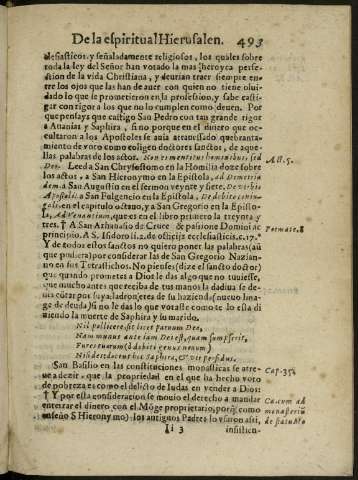 De la espiritual Hierusalen. 493
clesiasticos, y señaladamente religiosos, los quales sobre
toda la ley del Señor han votado la mas heroyca perfe-
ction de la vida Christiana, y deurian traer siempre en-
tre los ojos que las han de auer con quien no tiene oluì-
dado lo que se prometieron en la profession, y sabe casti-
gar con rigor a los que no lo cumplen como deuen. Por
que pensays que castigo San Pedro con tan grande rigor
a Ananias y Saphira, si no porque en el dinero que oc-
cultaron a los Apostoles se auia atrauessado quebranta-
miento de voto como coligen doctores sanctos, de aque-
llas palabras de los actos. Non es mentitus hominibus, sed
Deo. Leed a San Chrysostomo en la Homilia doze sobre
los actos, a San Hieronymo en la Epistola, ad Demetria
dem. a San Augustin en el sermon veynte y siete. De verbis
Apostoli. a San Fulgencio en la Epistola, De debito coniu-
gali. en el capitulo octauo, y a San Gregorio en la Episto-
la, Ad Venantium, que es en el libro primero la treynta y
tres. † A San Athanasio de Cruce & passione Domini ac
principio. A S. Isidoro li. 2. de officijs ecclesiasticis. c. 17.
Y de todos estos sanctos no quiero poner las palabras (aũ
que pudiera) por considerar las de San Gregorio Nazian-
no en sus Tetrastichos. No pienses (dize el sancto doctor)
que quando prometes a Dios le das algo que no tuuiesse,
que mucho antes que reciba de tus manos la dadiua se de-
ues cõtar por suya, ladron eres de su hazienda (nueuo lina-
ge de deuda) si no le das lo que votaste como te lo esta di
ziendo la muerte de Saphira y su marido.
Nil polliceri sit licet paruum Deo,
Nam munus ante iam Dei est, quam sumpserit,
Fures tuarum (ô debiti genus nouum)
Nisi des docet hic Saphira, & vir perfidus.
San Basilio en las constituciones monasticas se atre-
ue a dezir, que la propriedad en el que ha hecho voto
de pobreza es como el delicto de Iudas en vender a Dios:
† Y por esta consideracion se mouio el derecho a mandar
enterrar el dinero con el Mõge proprietario, porq̃ (como
enseño S Hieronymo) los antiguos Padres lo vsaron assi,
Ii 3 insistien-
Act. 5.
Poematc. 8
Cap. 35.
Ca. cum ad
monasteriũ
de statu Mo